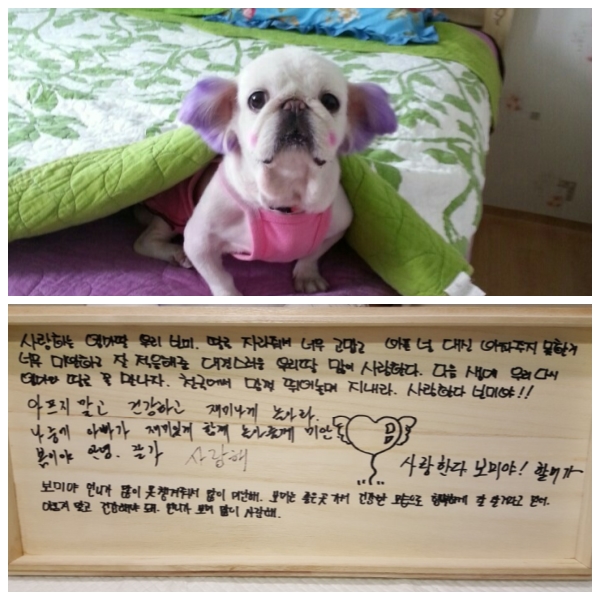 사랑하는 엄마딸 우리 보미. 딸로 자라줘서 너무 고맙고 아픈 널 대신 아파주지 못한게
너무 미안하고 잘 적응해준 대견스러운 우리딸 맘이 사랑한다. 다음 생에 우리 다시
엄마와 딸로 꼭 만나자. 천국에서 맘껏 뛰어놀며 지내라. 사랑한다 보미야!!
아프지 말고 건강하고 재미나게 놀아라.
나중에 아빠가 재미있게 함께 놀아줄께 미안
봄이야 안녕. 잘가 사랑해
사랑한다 보미야! 할머가
보미야 언니가 많이 못챙겨줘서 많이 미안해. 보미는 좋은곳 가서 건강한 모습으로 행복하게 잘 살거라고 믿어.
아프지 말고 건강해야 돼. 언니가 보미 많이 사랑해.